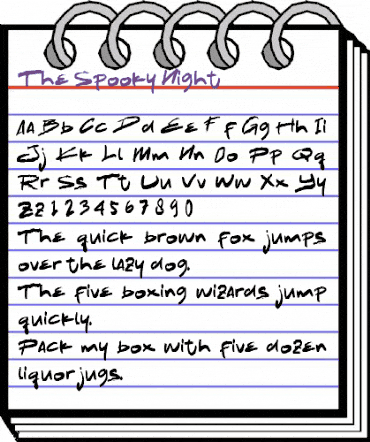 The Spooky Night
AA Bb Cc Dd Ee Ff Gg Hh Ii
Jj Kk Ll Mm Nn Oo Pp Qq
Rr Ss Tt Uu Vv Ww Xx Yy
Zz 1 2 3 4 5 6 7 8 9 0
The quick brown fox jumps
over the lazy dog.
The five boxing wizards jump
quickly.
Pack my box with five dozen
liquor jugs.